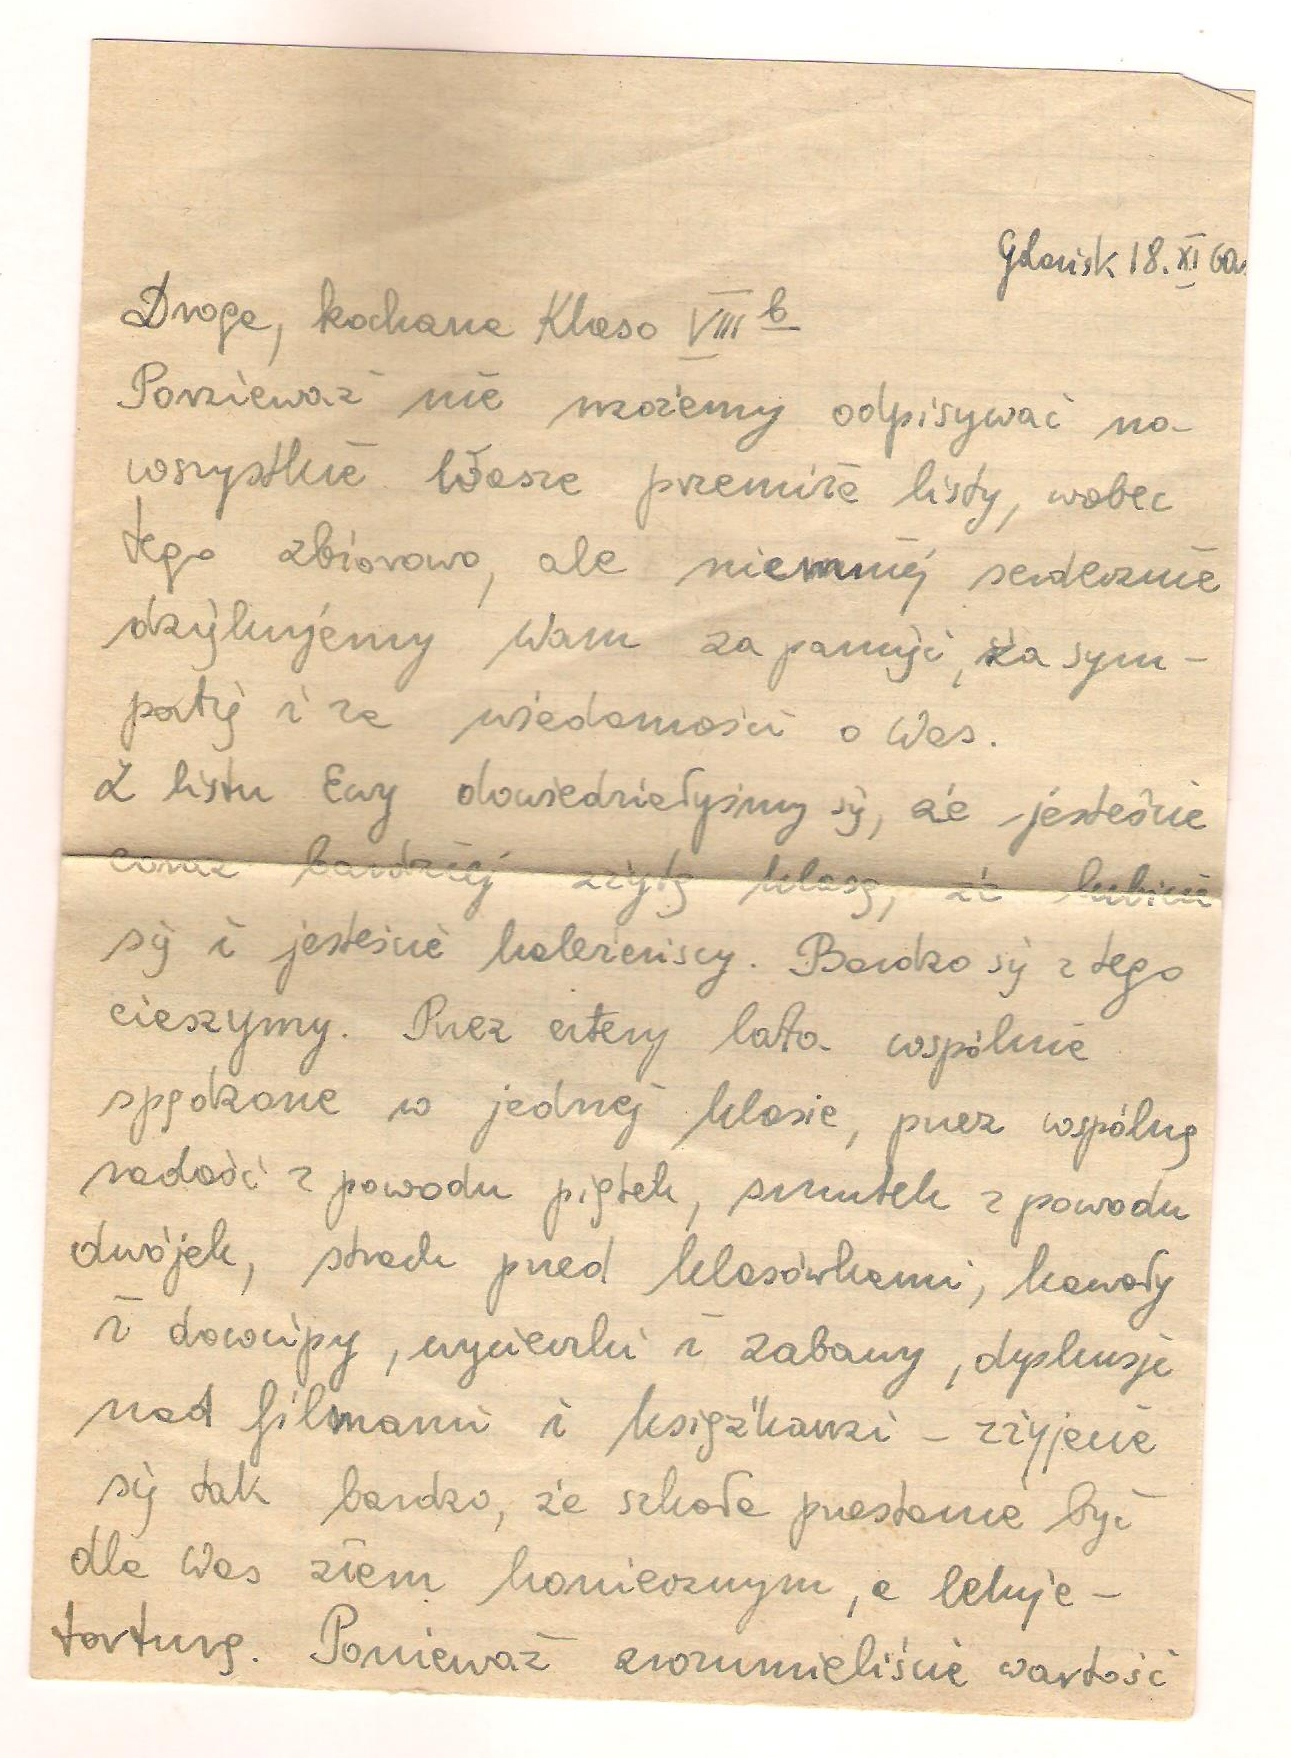 Gdańsk 18.XI 60r.
Droga, kochana Klaso VIII b
Ponieważ nie możemy odpisywać na
wszystkie Wasze przemiłe listy, wobec
tego zbiorowo, ale niemniej serdecznie
dziękujemy Wam za pamięć, za sym-
patię i za wiadomości o Was.
Z listu Ewy dowiedziełyśmy się, że jesteście
coraz bardziej zżytą klasą, że lubicie
się i jesteście koleżeńscy. Bardzo się z tego
cieszymy. Przez cztery lata wspólnie
spędzone w jednej klasie, przez wspólną
radość z powodu piątek, smutek z powodu
dwójek, strach przed klasówkami, kawały
i dowcipy, wycieczki i zabawy, dyskusje
nad filmami i książkami – zżyjecie
się tak bardzo, że szkoła przestanie być
dla Was złem koniecznym, a lekcje –
torturą. Ponieważ zrozumieliście wartość